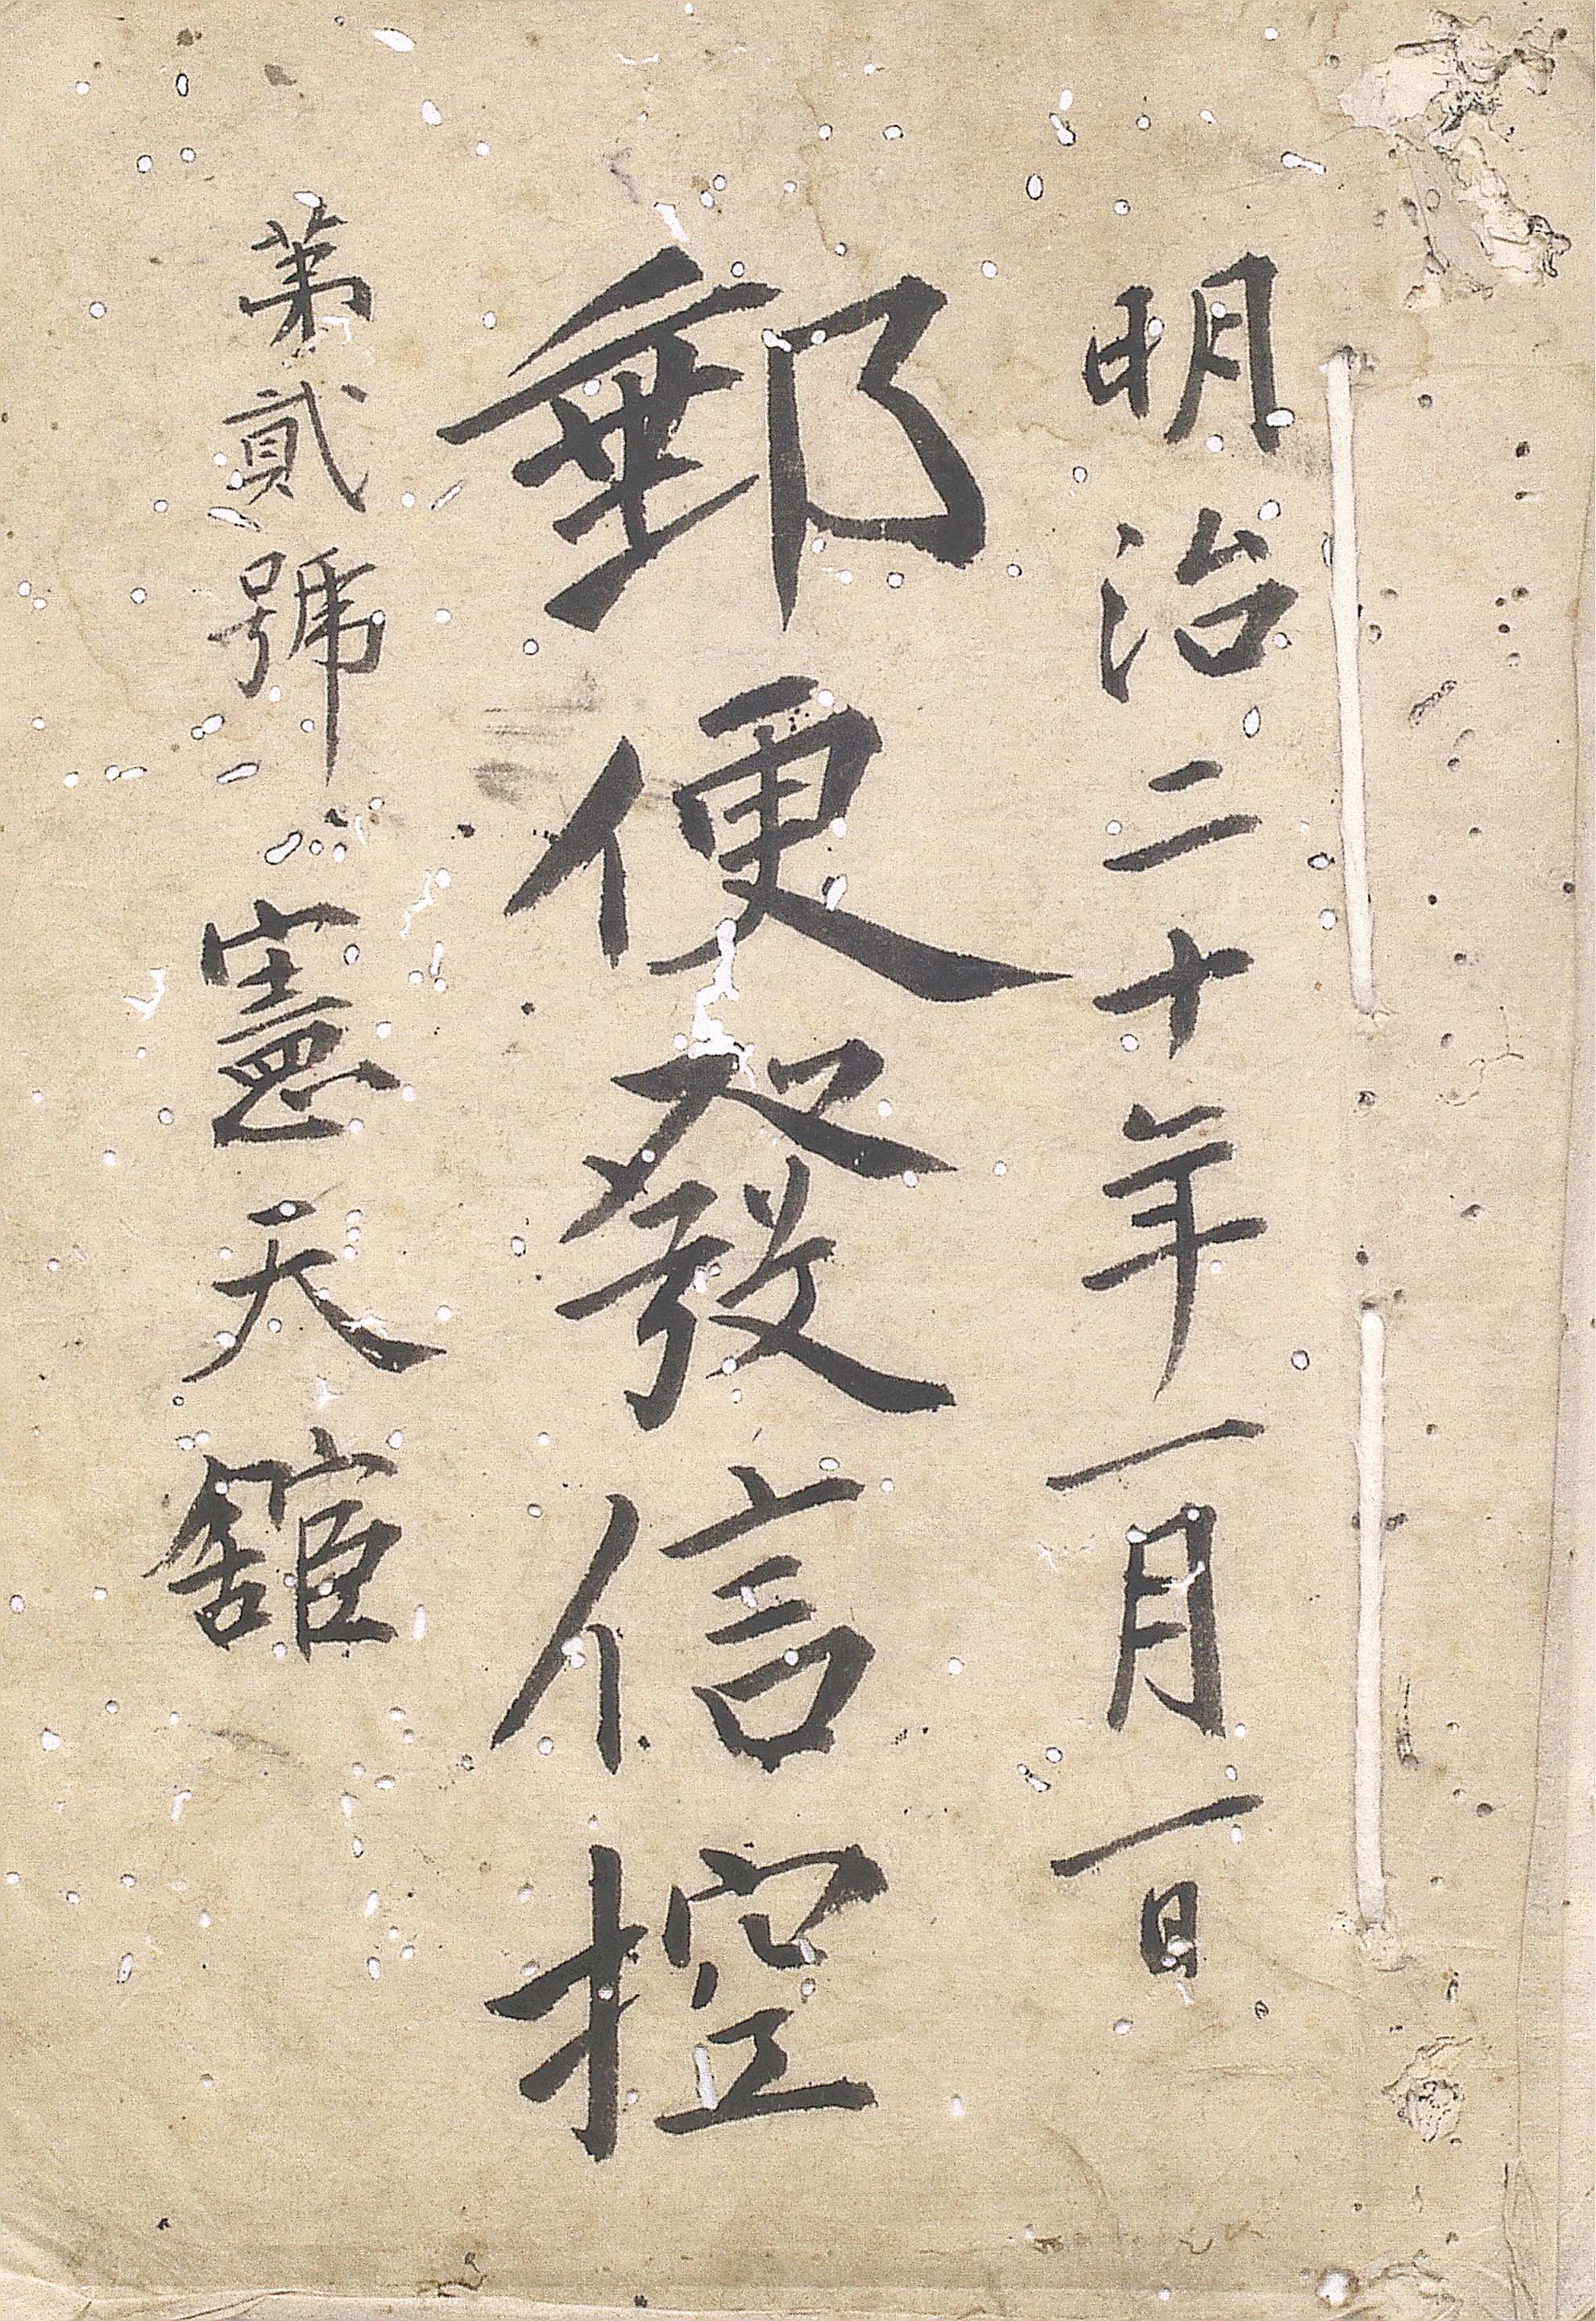 明治二十年一月一日
郵便發信控
第貳號 憲天舘